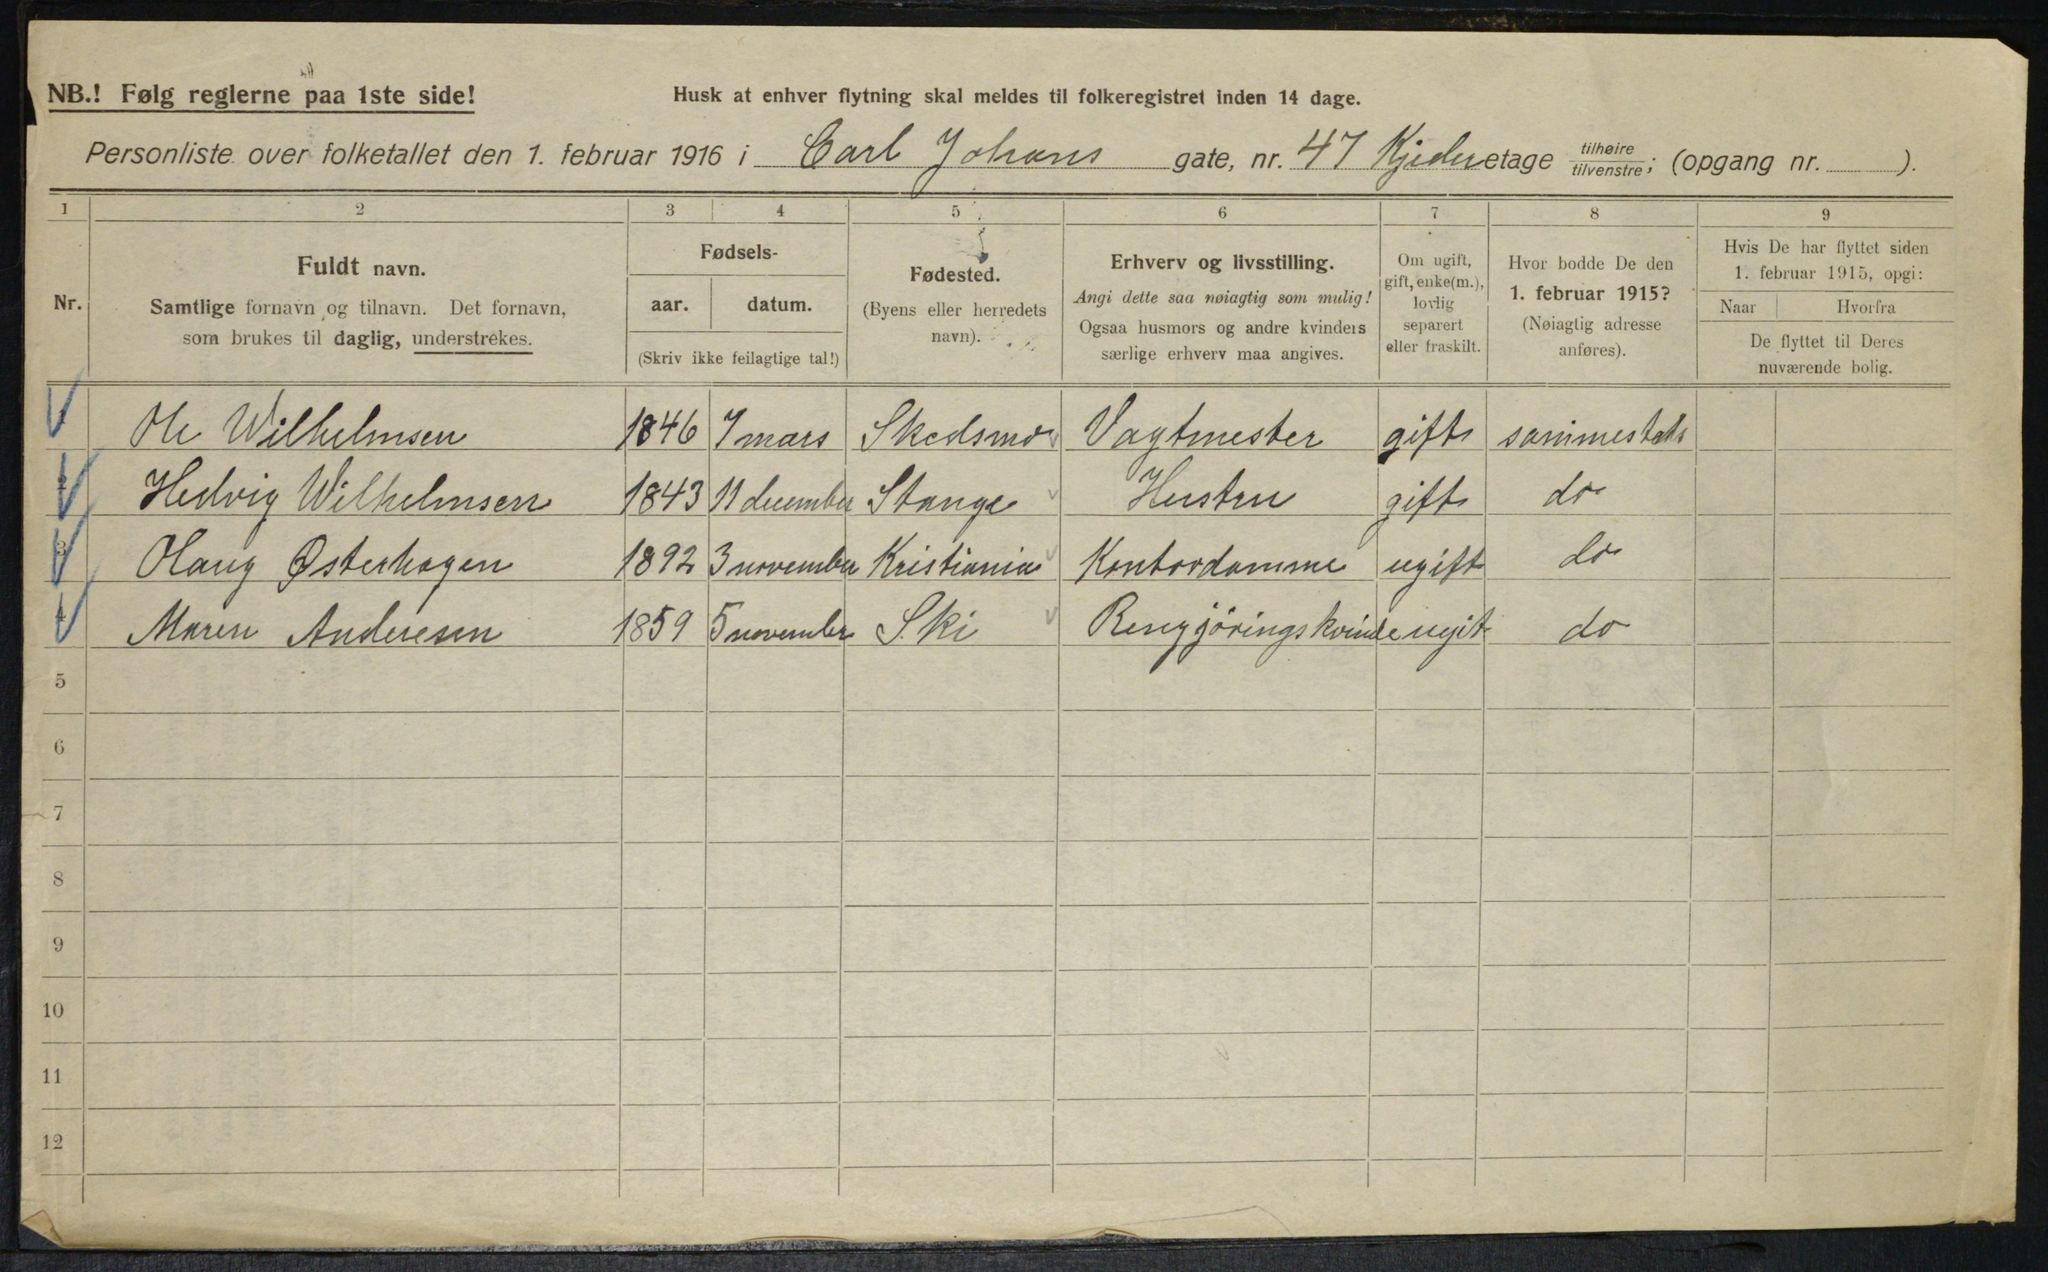 NB.! Følg reglerne paa 1ste side!
Husk at enhver flytning skal meldes til folkeregistret inden 14 dage.
Personliste over folketallet den 1. februar 1916 i Carl Johans gate, nr. 47 Kjelder etage tilhøire tilvenstre; (opgang nr. ).
1 2 3 4 5 6 7 8 9
Nr.
Fuldt navn.
Samtlige fornavn og tilnavn. Det fornavn,
som brukes til daglig, understrekes.
Fødsels-
aar. datum.
(Skriv ikke feilagtige tal!)
Fødested.
(Byens eller herredets
navn).
Erhverv og livsstilling.
Angi dette saa nøiagtig som mulig!
Ogsaa husmors og andre kvinders
særlige erhverv maa angives.
Om ugift,
gift, enke(m.),
lovlig
separert
eller fraskilt.
Hvor bodde De den
1. februar 1915?
(Nøiagtig adresse
anføres).
Hvis De har flyttet siden
1. februar 1915, opgi:
Naar Hvorfra
De flyttet til Deres
nuværende bolig.
1 Ole Wilhelmsen 1846 7 mars Skedsmo Vagtmester gift sammesteds
2 Hedvig Wilhelmsen 1843 11 december Stange Hustru gift do
3 Østerhagen 1892 3 november Kristiania Kontordamme ugift do
4 Maren Andersen 1859 5 november Ski Rengjøringskvinde ugit do
5
6
7
8
9
10
11
12